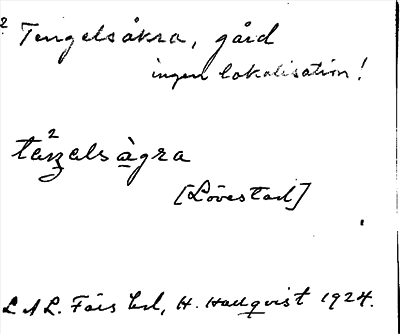 2 Tengelsåkra, gård
ingen lokalisation!
2
täŋəlsàgra
[Lövestad]
L A L. Färs hd, H. Hallqvist 1924.